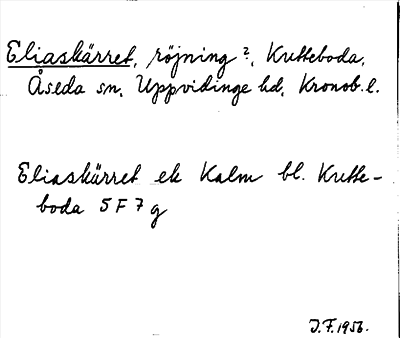 Eliaskärret, röjning?, Krutteboda,
Åseda sn, Uppvidinge hd, Kronob. l.
Eliaskärret ek Kalm bl. Krutte-
boda 5 F 7 g
J.F. 1956.